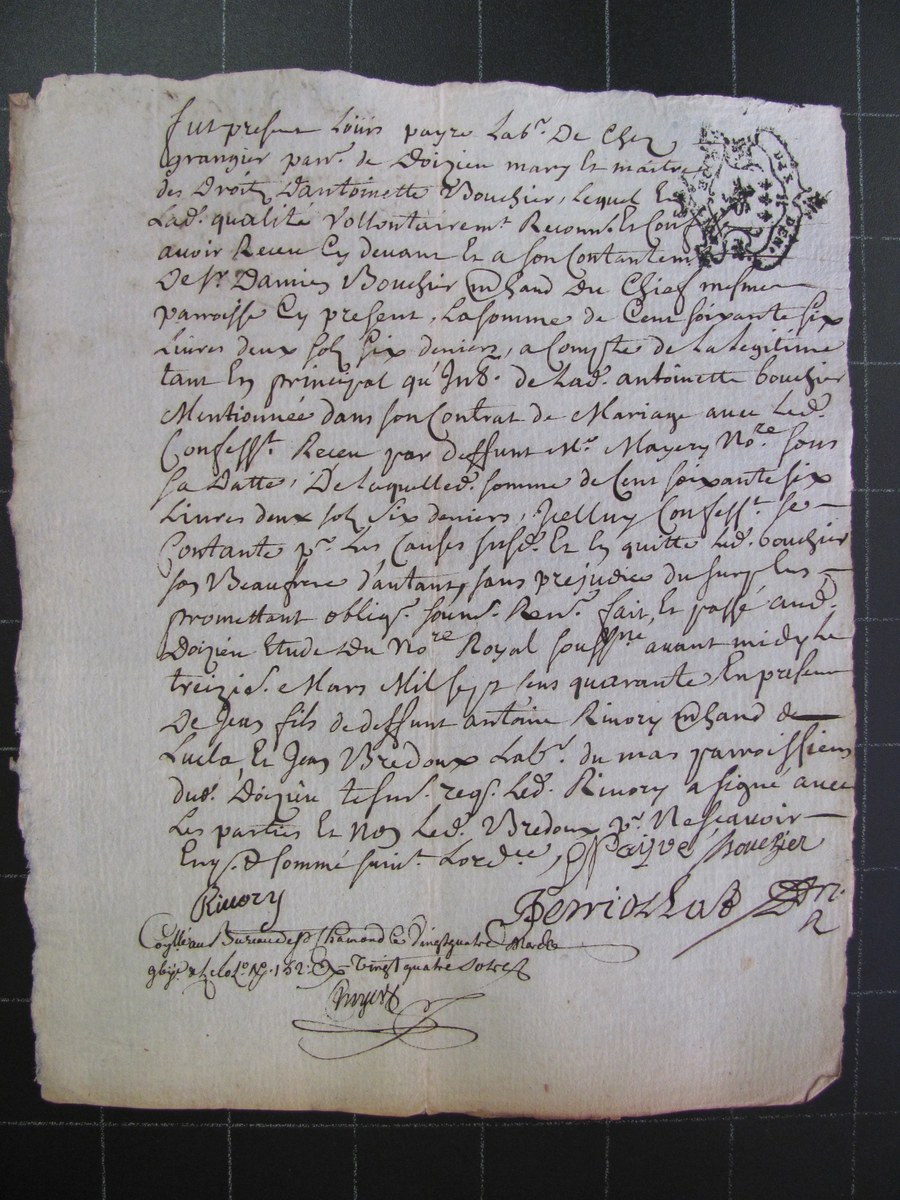 fut present Loüis payre Lab.r De Chez
grangier parr.e de Doizieu mary Et maitre
des Droits D'antoinette Bouchier, Lequel En
Lad. qualité Vollontairem.t Reconn. Et Conf
avoir Receu Cy devant Et a son Contantem
De S.r Damien Bouchier mhand Du Chief mesme
parroisse Cy present, La somme de Cent soixante six
Livres deux sols six deniers, a Compte de La Legitime
tant En principal qu'Int. de Lad. antoinette bouchier
Mentionnée dans son Contrat de Mariage avec Led.
Confess.t Receu par deffunt M.e Mayery No.re sous
sa Datte, De laquelled. somme de Cent soixante six
Livres deux sols Six deniers, Icelluy Confess.t se
Contante p.r Les Causes susd. Et En quitte Led. bouchier
son Beaufrere d'autant, sans prejudice du surplus
promettant obligs. soums. Ren.s fait, Et passé aud.
Doizieu Etude Du No.re Royal souss.ne avant midy Le
treizie. Mars Mil sept Cens quarante En presence
De Jean fils de deffunt antoine Rivory mhand de
Lucla, Et Jean Bredoux Lab.r du mas parroissiens
dud. Doizieu tesm.s req.s Led. Rivory a signé avec
Les parties Et Non Led. Bredoux p.r Ne scavoir
Enq.s & sommé suiv.t L'ord.ce, Payre Bouchier
Rivory
Coñllé au Bureau de St Chamond Le vingt quatre Mars
fo. 152 Rx vingt quatre sols